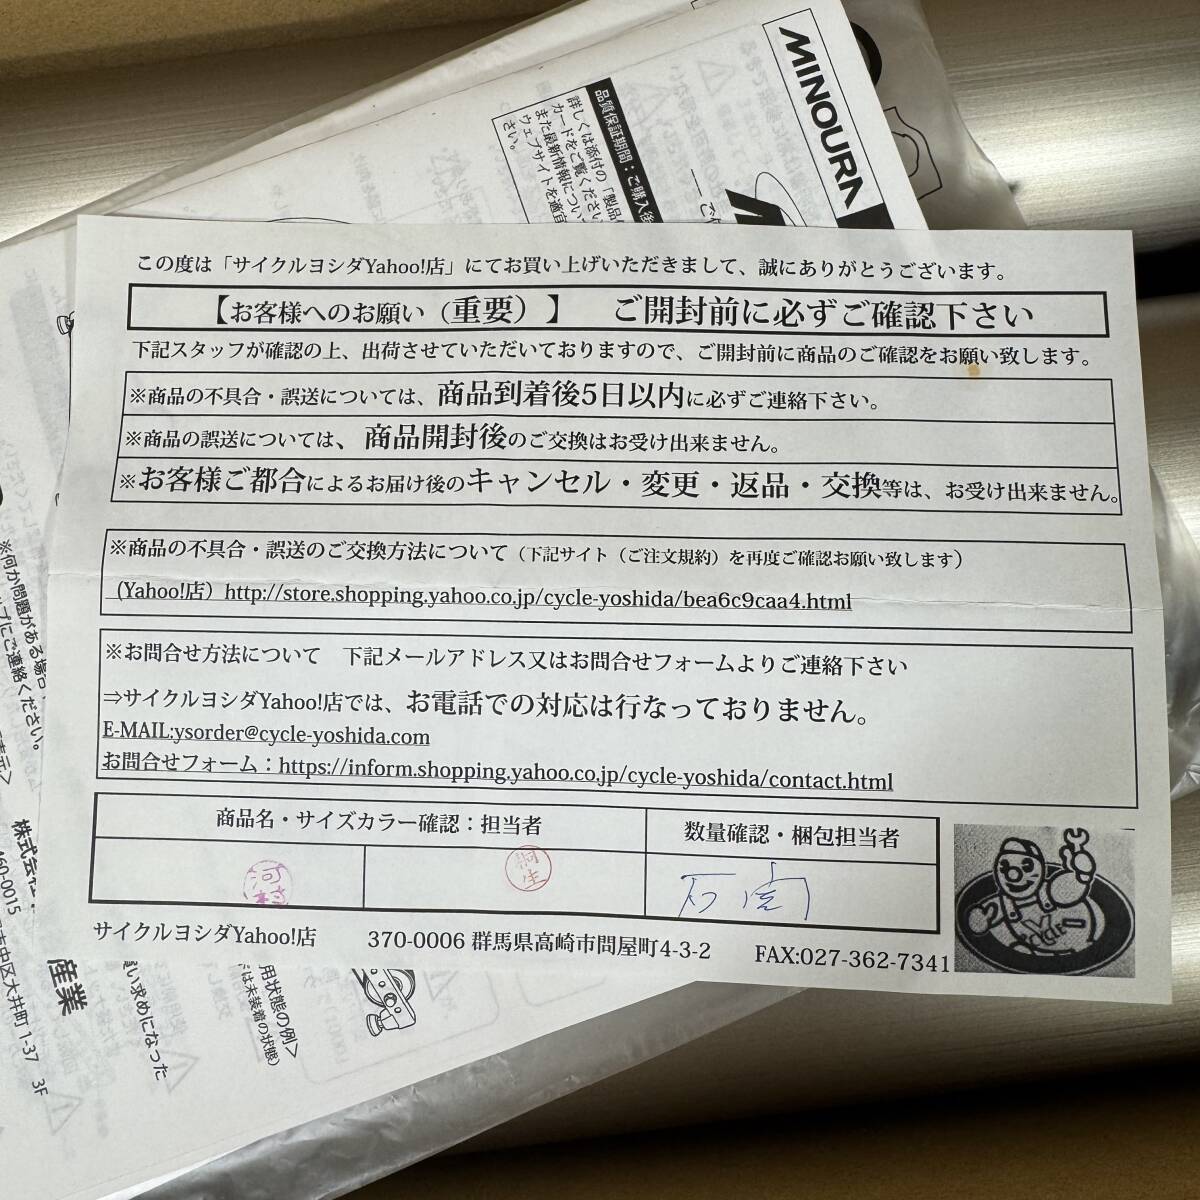 MINOURA
品質保証期間：ご購入後
詳しくは添付の「製品
カードをご覧ください
また最新情報につい
ウェブサイトを適宜
さい。
この度は「サイクルヨシダYahoo!店」にてお買い上げいただきまして、誠にありがとうございます。
【お客様へのお願い（重要）】　ご開封前に必ずご確認下さい
下記スタッフが確認の上、出荷させていただいておりますので、ご開封前に商品のご確認をお願い致します。
※商品の不具合・誤送については、商品到着後5日以内に必ずご連絡下さい。
※商品の誤送については、商品開封後のご交換はお受け出来ません。
※お客様ご都合によるお届け後のキャンセル・変更・返品・交換等は、お受け出来ません。
※商品の不具合・誤送のご交換方法について（下記サイト（ご注文規約）を再度ご確認お願い致します）
（Yahoo!店）http://store.shopping.yahoo.co.jp/cycle-yoshida/bea6c9caa4.html
※お問合せ方法について　下記メールアドレス又はお問合せフォームよりご連絡下さい
⇒サイクルヨシダYahoo!店では、お電話での対応は行なっておりません。
E-MAIL:ysorder@cycle-yoshida.com
お問合せフォーム：https://inform.shopping.yahoo.co.jp/cycle-yoshida/contact.html
商品名・サイズカラー確認：担当者
数量確認・梱包担当者
河村
桐生
サイクルヨシダYahoo!店　370-0006 群馬県高崎市問屋町4-3-2　FAX:027-362-7341
※何か問題がある場合
プにご連絡ください。
株式会社
460-0015
中区大井町 1-37　3F
産業
買い求めになった
用状態の例＞
は未装着の状態）